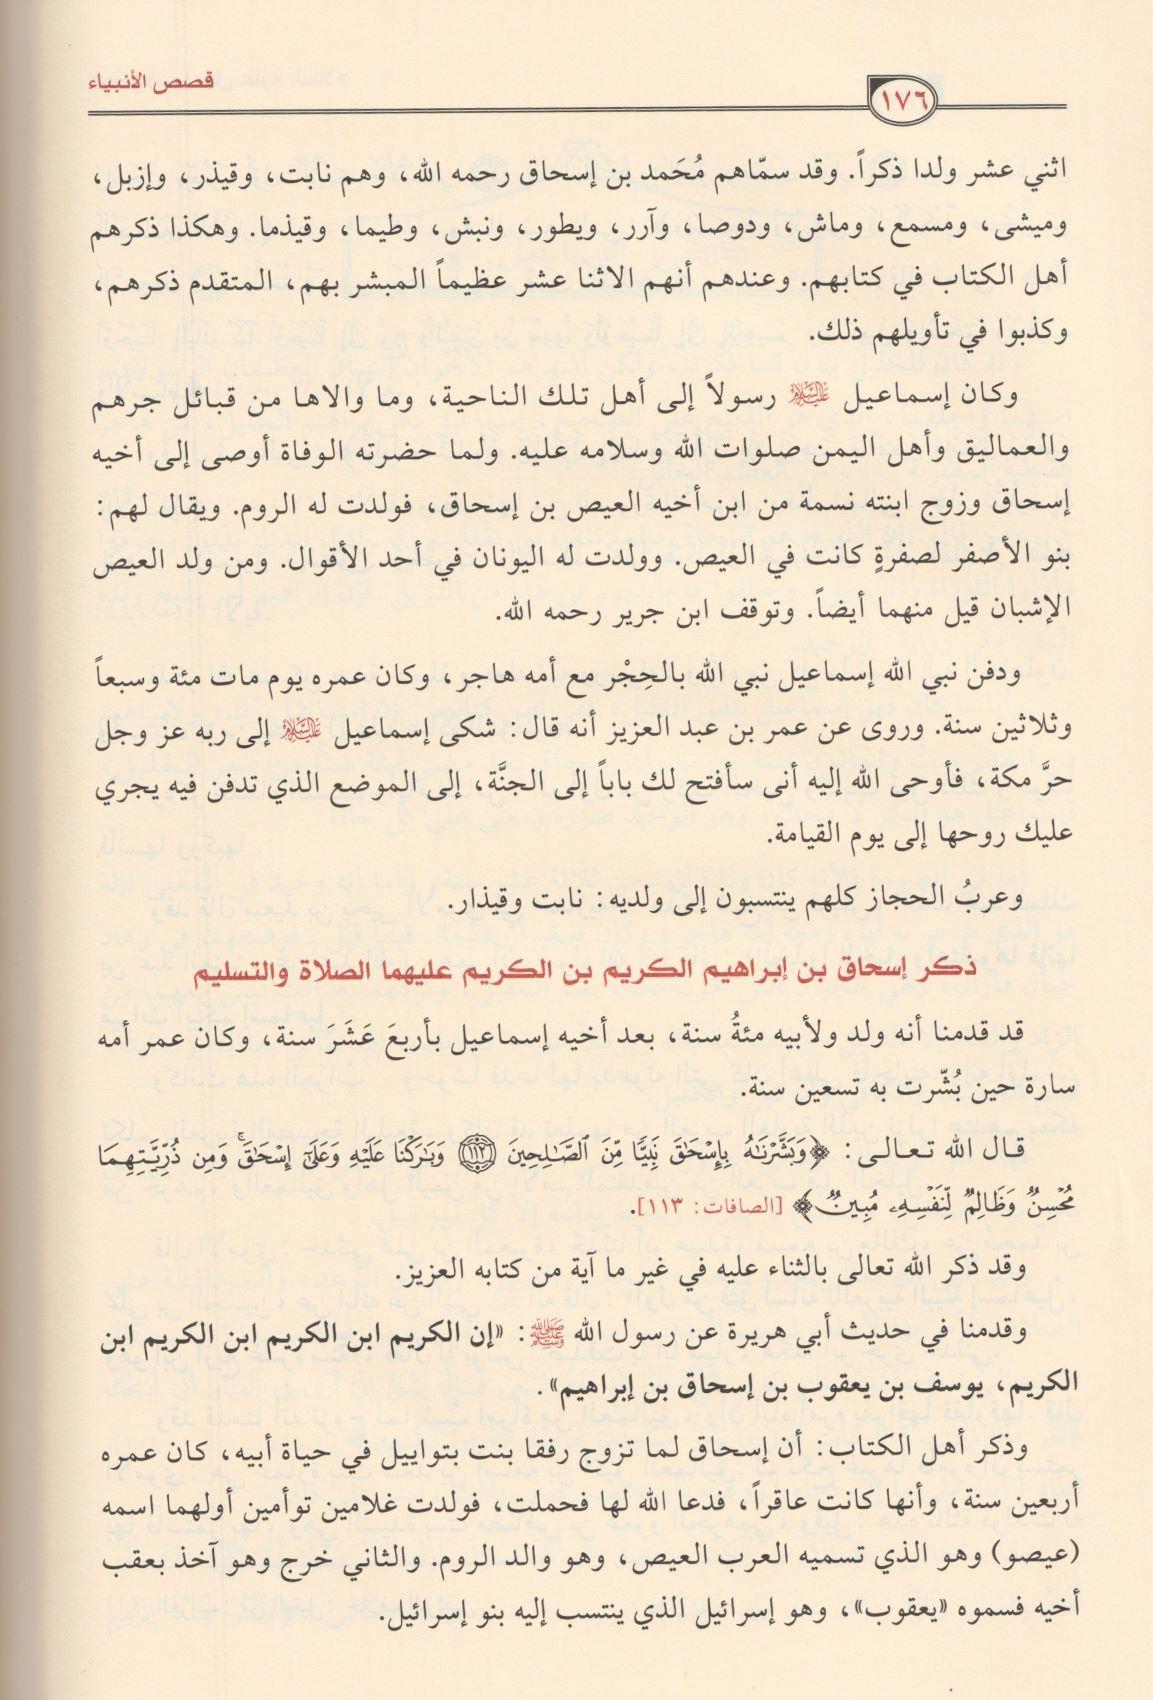 قصص الأنبياء
١٧٦
اثني عشر ولدا ذكراً. وقد سمّاهم مُحَمد بن إسحاق رحمه الله، وهم نابت، وقيذر، وإزبل،
وميشى، ومسمع، وماش، ودوصا، وآرر، ويطور، ونبش، وطيما، وقيذما. وهكذا ذكرهم
أهل الكتاب في كتابهم. وعندهم أنهم الاثنا عشر عظيماً المبشر بهم، المتقدم ذكرهم،
وكذبوا في تأويلهم ذلك.
وكان إسماعيل عليه السلام رسولاً إلى أهل تلك الناحية، وما والاها من قبائل جرهم
والعماليق وأهل اليمن صلوات الله وسلامه عليه. ولما حضرته الوفاة أوصى إلى أخيه
إسحاق وزوج ابنته نسمة من ابن أخيه العيص بن إسحاق، فولدت له الروم. ويقال لهم:
بنو الأصفر لصفرةٍ كانت في العيص. وولدت له اليونان في أحد الأقوال. ومن ولد العيص
الإشبان قيل منهما أيضاً. وتوقف ابن جرير رحمه الله.
ودفن نبي الله إسماعيل نبي الله بالحِجْر مع أمه هاجر، وكان عمره يوم مات مئة وسبعاً
وثلاثين سنة. وروى عن عمر بن عبد العزيز أنه قال: شكى إسماعيل عليه السلام إلى ربه عز وجل
حرَّ مكة، فأوحى الله إليه أنى سأفتح لك باباً إلى الجنَّة، إلى الموضع الذي تدفن فيه يجري
عليك روحها إلى يوم القيامة.
وعربُ الحجاز كلهم ينتسبون إلى ولديه: نابت وقيذار.
ذكر إسحاق بن إبراهيم الكريم بن الكريم عليهما الصلاة والتسليم
قد قدمنا أنه ولد ولأبيه مئةُ سنة، بعد أخيه إسماعيل بأربعَ عَشَرَ سنة، وكان عمر أمه
سارة حين بُشّرت به تسعين سنة.
قال الله تعالى: ﴿وَبَشَّرْنَاهُ بِإِسْحَاقَ نَبِيًّا مِّنَ الصَّالِحِينَ ١١٢ وَبَارَكْنَا عَلَيْهِ وَعَلَىٰ إِسْحَاقَ ۚ وَمِن ذُرِّيَّتِهِمَا
مُحْسِنٌ وَظَالِمٌ لِّنَفْسِهِ مُبِينٌ﴾ [الصافات: ١١٣].
وقد ذكر الله تعالى بالثناء عليه في غير ما آية من كتابه العزيز.
وقدمنا في حديث أبي هريرة عن رسول الله ﷺ: «إن الكريم ابن الكريم ابن الكريم ابن
الكريم، يوسف بن يعقوب بن إسحاق بن إبراهيم».
وذكر أهل الكتاب: أن إسحاق لما تزوج رفقا بنت بتواييل في حياة أبيه، كان عمره
أربعين سنة، وأنها كانت عاقراً، فدعا الله لها فحملت، فولدت غلامين توأمين أولهما اسمه
(عيصو) وهو الذي تسميه العرب العيص، وهو والد الروم. والثاني خرج وهو آخذ بعقب
أخيه فسموه «يعقوب»، وهو إسرائيل الذي ينتسب إليه بنو إسرائيل.